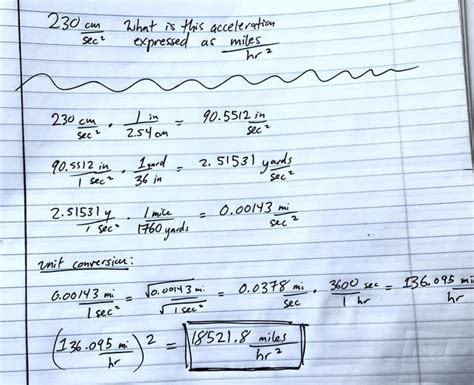 230 cm/sec² What is this acceleration expressed as miles/hr²
230 cm/sec² · 1 in/2.54 cm = 90.5512 in/sec²
90.5512 in/1 sec² · 1 yard/36 in = 2.51531 yards/sec²
2.51531 y/1 sec² · 1 mile/1760 yards = 0.00143 mi/sec²
unit conversion:
0.00143 mi/1 sec² = √0.00143 mi/√1 sec² = 0.0378 mi/sec · 3600 sec/1 hr = 136.095 mi/hr
(136.095 mi/hr)² = 18521.8 miles/hr²